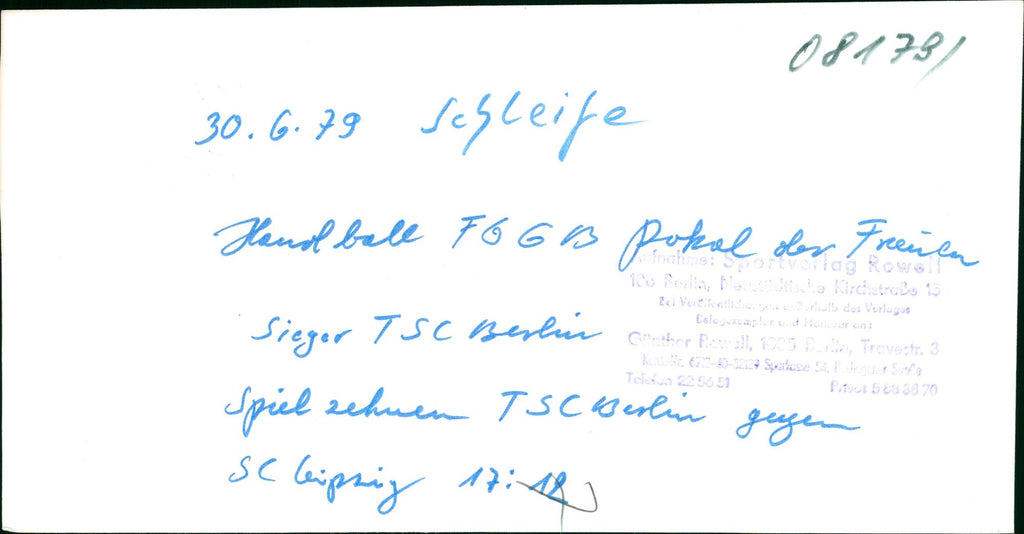 081791
30.6.79 Schleife
Handball FGGB Pokal der Frauen
Aufnahme: Sportverlag Rowell
108 Berlin, Neustädtische Kirchstraße 15
Bei Veröffentlichungen außerhalb des Verlages
Belegexemplar und Honorar an:
Sieger TSC Berlin
Günther Rowell, 1035 Berlin, Travestr. 3
Sparkasse
Telefon 22 56 51 Privat 5 88 38 70
Spielszenen TSC Berlin gegen
SC Leipzig 17: